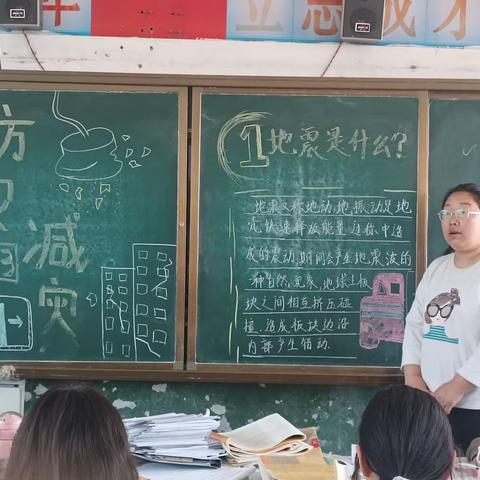 立志成才
减灾
1 地震是什么?
地震又称地动、地振动是地
壳快速释放能量过程中造
成的震动,期间会产生地震波的
一种自然现象,地球上板
块之间相互挤压碰
撞,造成板块边沿
内部产生错动.